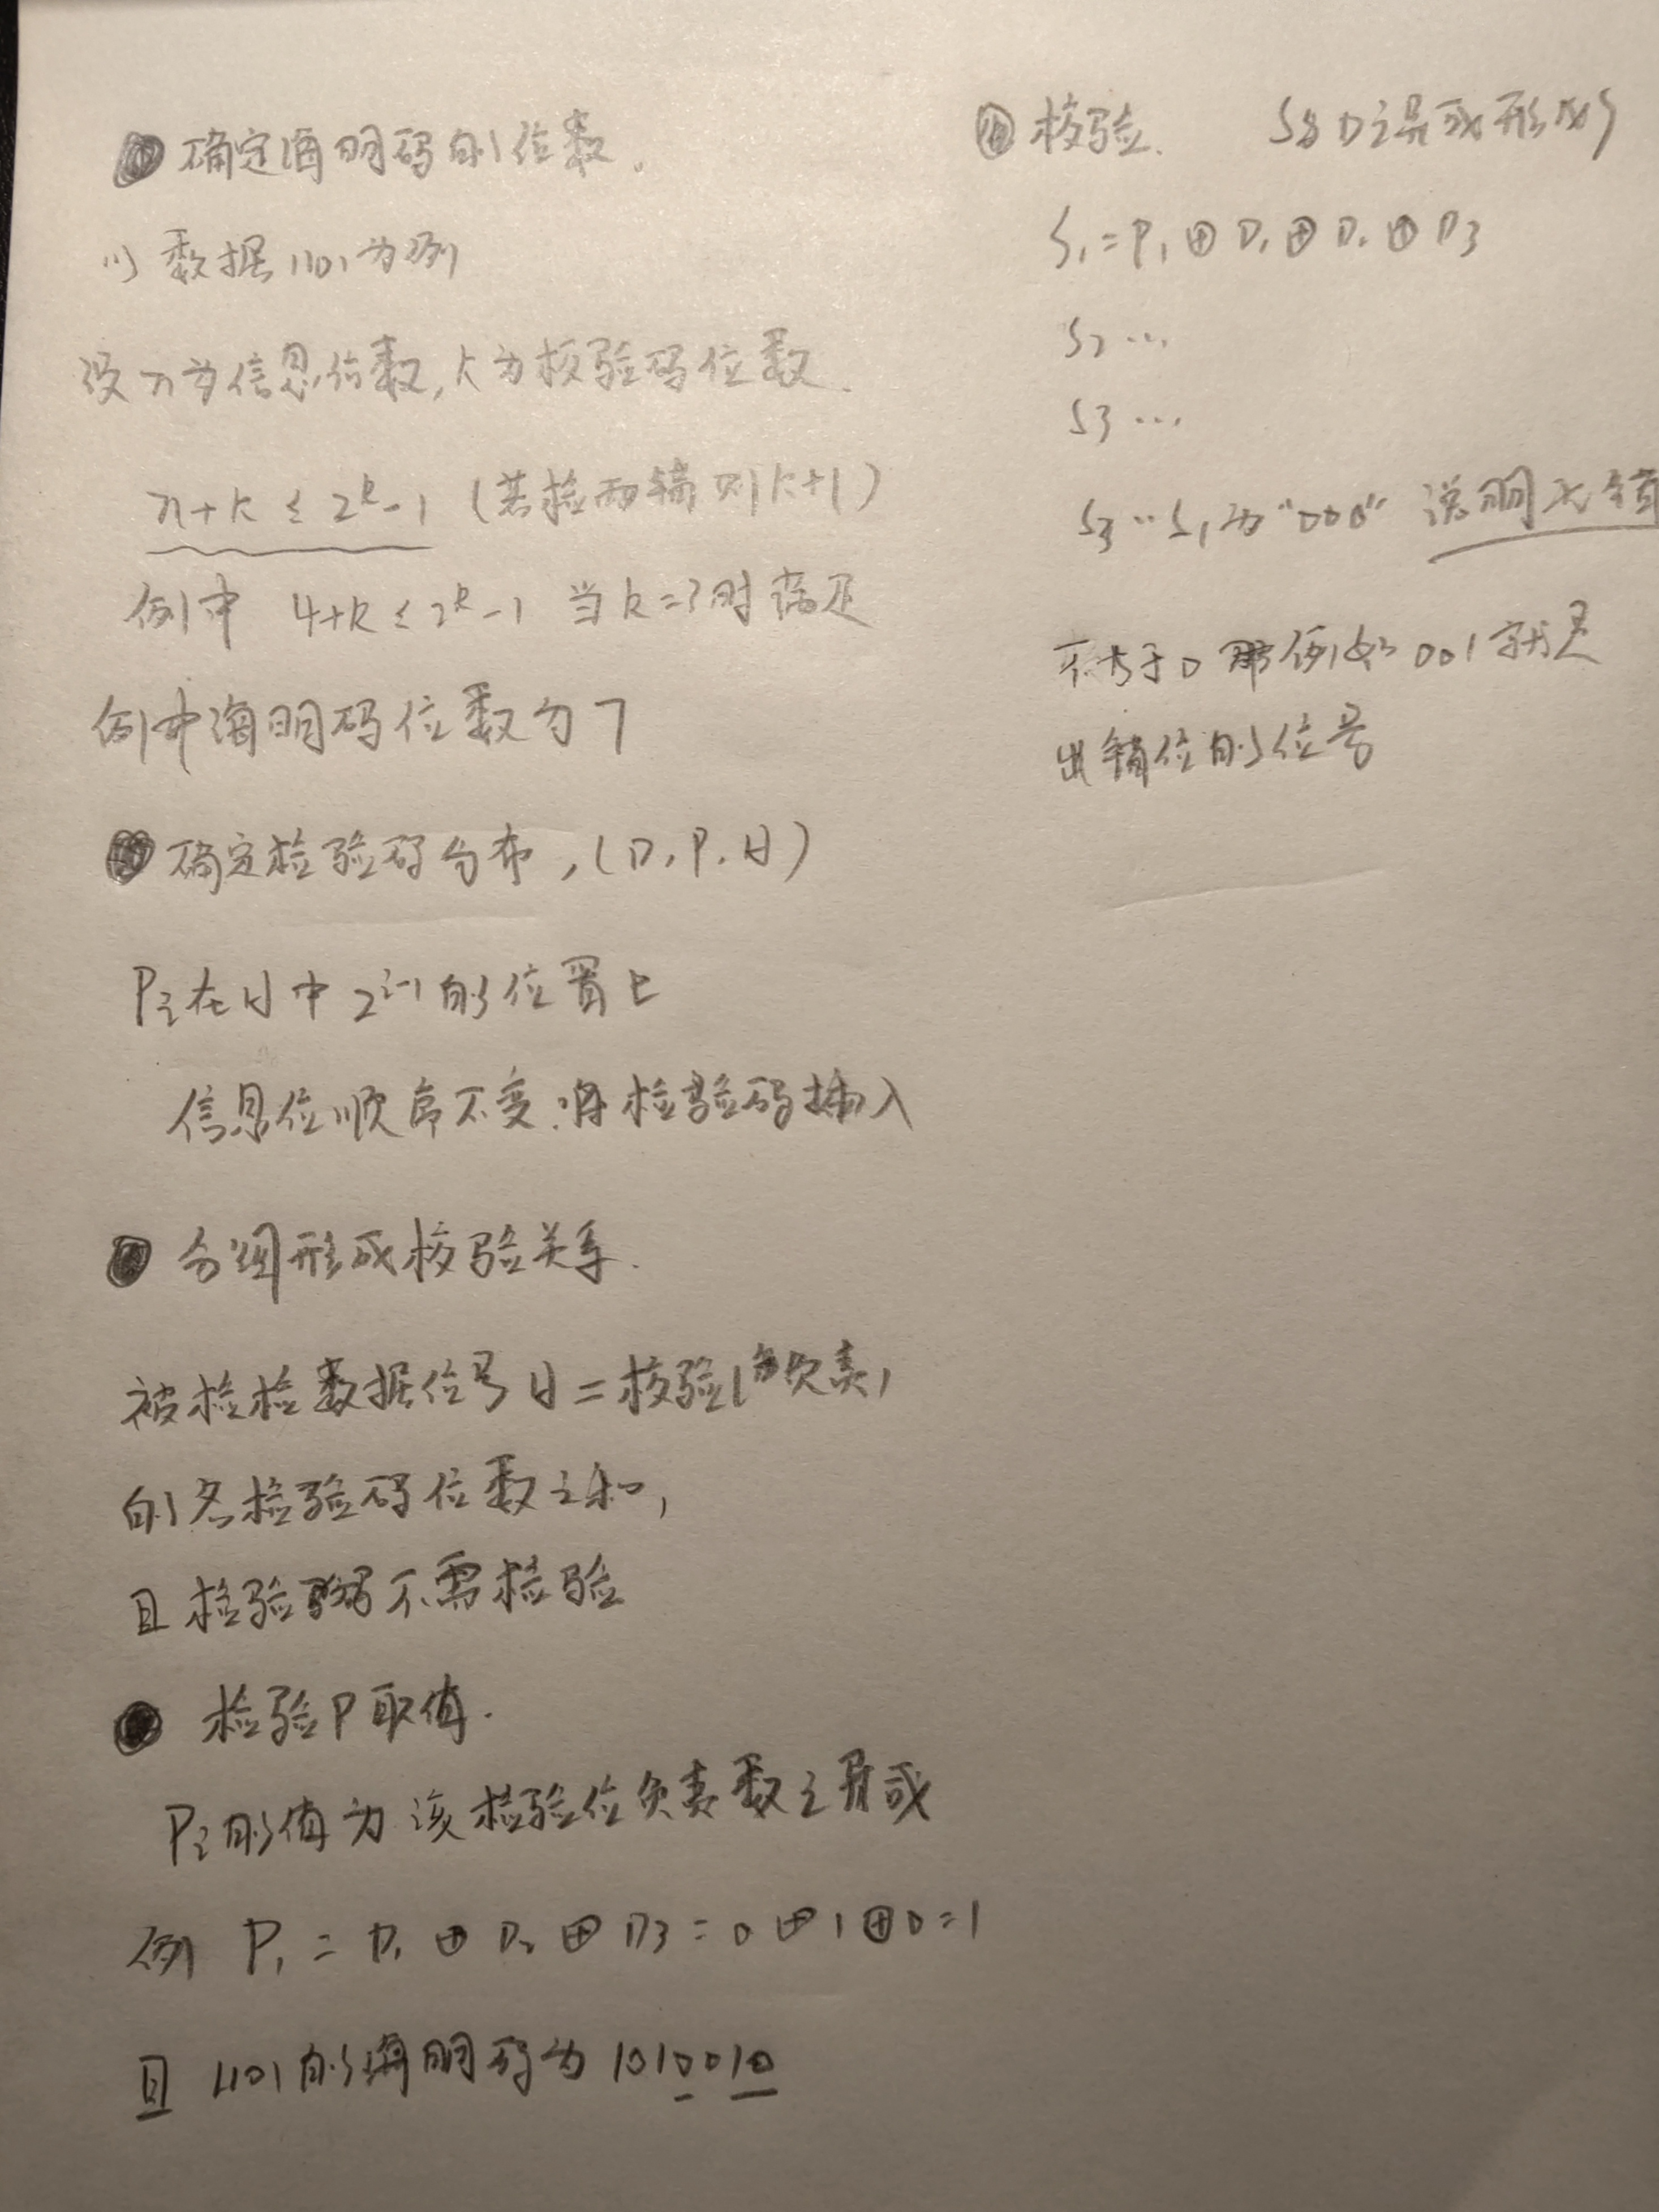 确定海明码的位数.
以数据1101为例
设n为信息位数,k为校验码位数.
n+k ≤ 2^k-1 (若检两错则k+1)
例中 4+k ≤ 2^k-1 当k=3时满足
例中海明码位数为7
确定检验码分布,(D,P,H)
Pi在H中2^i-1的位置上
信息位顺序不变,将检验码插入
分组形成校验关系.
被检验数据位号H=校验(负责)
的各检验码位数之和,
且检验码不需检验
检验P取值.
Pi的值为该检验位负责数之异或
例 P1 = D1 ⊕ D2 ⊕ D3 = 0 ⊕ 1 ⊕ 0 = 1
且 1101的海明码为 1010010
④ 校验. 形成S
S1 = P1 ⊕ D1 ⊕ D2 ⊕ D3
S2 ...
S3 ...
S3 ... S1为"000" 说明无错
不等于0 那例如001就是
出错位的位号